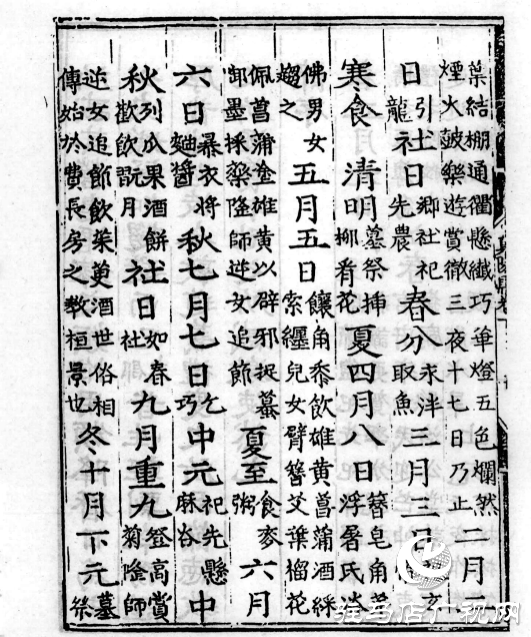 葉結棚通衢懸纖巧華燈五色爛然煙火皷樂遊賞徹三夜十七日乃止二月二
日引龍社日鄉社祀先農春分求泮取魚三月三日玄
寒食清明墓祭挿日柳肴花夏四月八日簪皂角芽浮屠氏浴
佛男女趨之五月五日饟角黍飲雄黃菖蒲酒綵索纏兒女臂簪艾葉榴花
佩菖蒲塗雄黃以辟邪捉蟇卸墨採藥隆師逆女追節夏至食麥粥六月
六日暴衣將麯醬秋七月七日乞巧中元祀先懸麻谷中
秋列瓜果酒餅歡飲翫月社日如春社九月重九登高賞菊隆師
逆女追節飲茱萸酒世俗相傳始於費長房之教桓景也冬十月下元墓祭
驻马店广视网